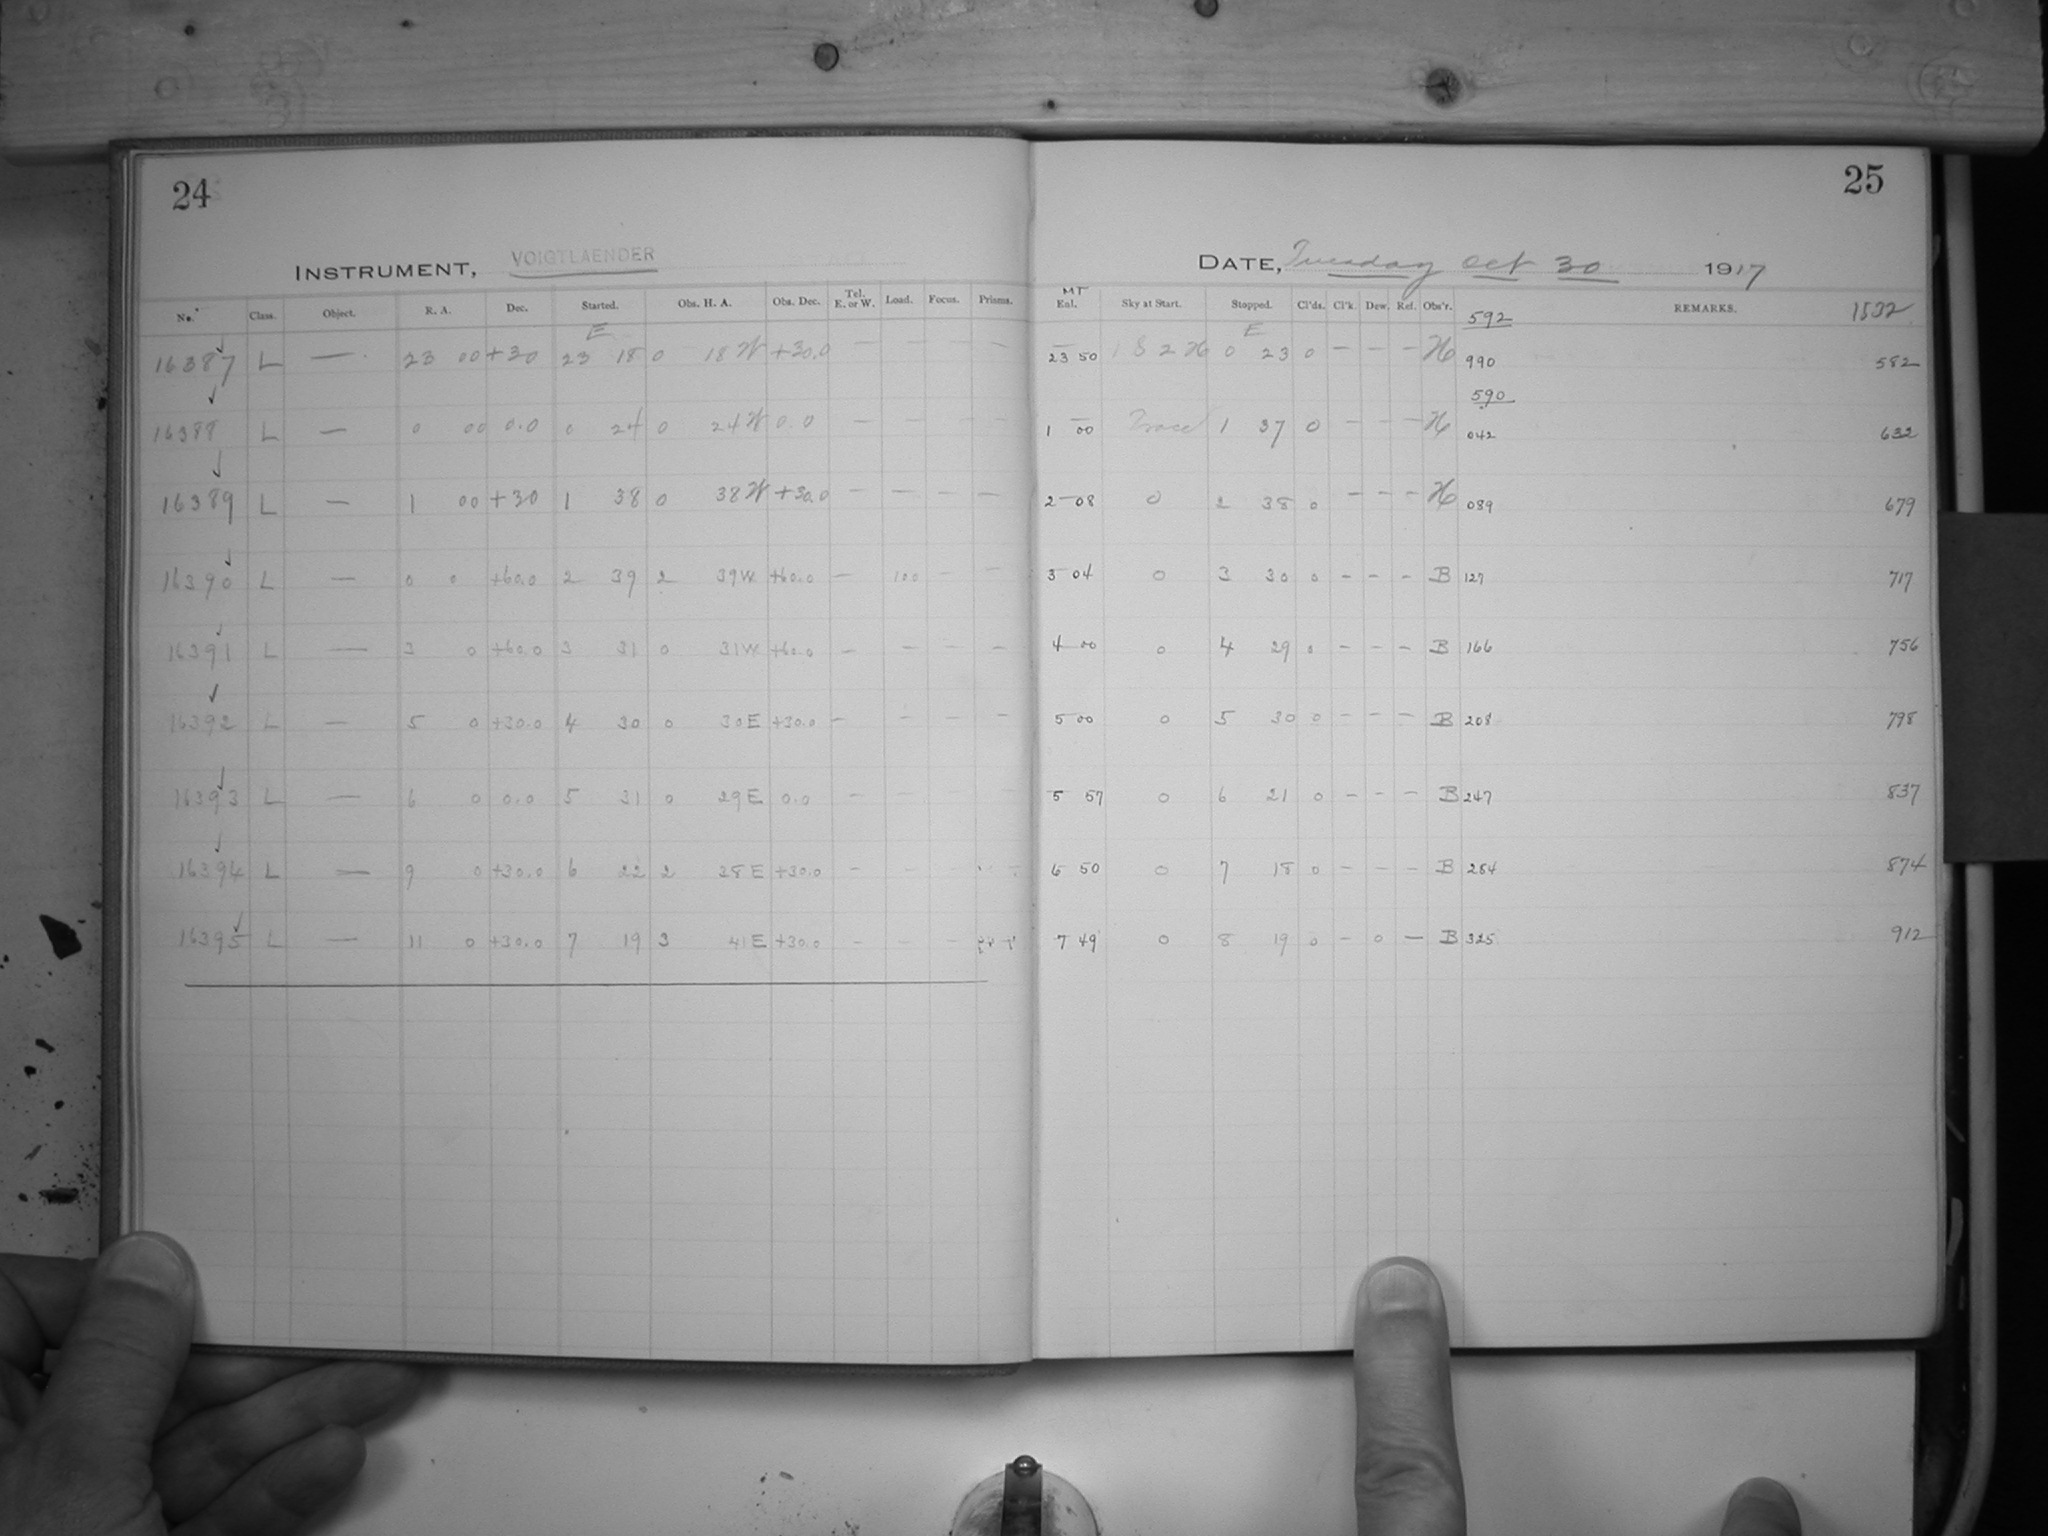 24
25
INSTRUMENT, VOIGTLAENDER
DATE, Tuesday Oct 30 1917
No. Class. Object. R. A. Dec. Started. Obs. H. A. Obs. Dec. Tel. E. or W. Load. Focus. Prisms. MT Enl. Sky at Start. Stopped. Cl'ds. Cl'k. Dew. Ref. Obs'r. REMARKS. 1532
E E 592
16387 L — 23 00 +30 23 18 0 18 W +30.0 — — — — 23 50 0 23 0 — — — H 990 582
590
16388 L — 0 00 0.0 0 24 0 24 W 0.0 — — — — 1 00 1 37 0 — — — H 042 632
16389 L — 1 00 +30 1 38 0 38 W +30.0 — — — — 2 08 0 2 38 0 — — — H 089 679
16390 L — 0 0 +60.0 2 39 2 39 W +60.0 — 100 — — 3 04 0 3 30 0 — — — B 127 717
16391 L — 3 0 +60.0 3 31 0 31 W +60.0 — — — — 4 00 0 4 29 0 — — — B 166 756
16392 L — 5 0 +30.0 4 30 0 30 E +30.0 — — — — 5 00 0 5 30 0 — — — B 208 798
16393 L — 6 0 0.0 5 31 0 29 E 0.0 — — — — 5 57 0 6 21 0 — — — B 247 837
16394 L — 9 0 +30.0 6 22 2 38 E +30.0 — — 6 50 0 7 18 0 — — — B 284 874
16395 L — 11 0 +30.0 7 19 3 41 E +30.0 — — — 7 49 0 8 19 0 — 0 — B 325 912